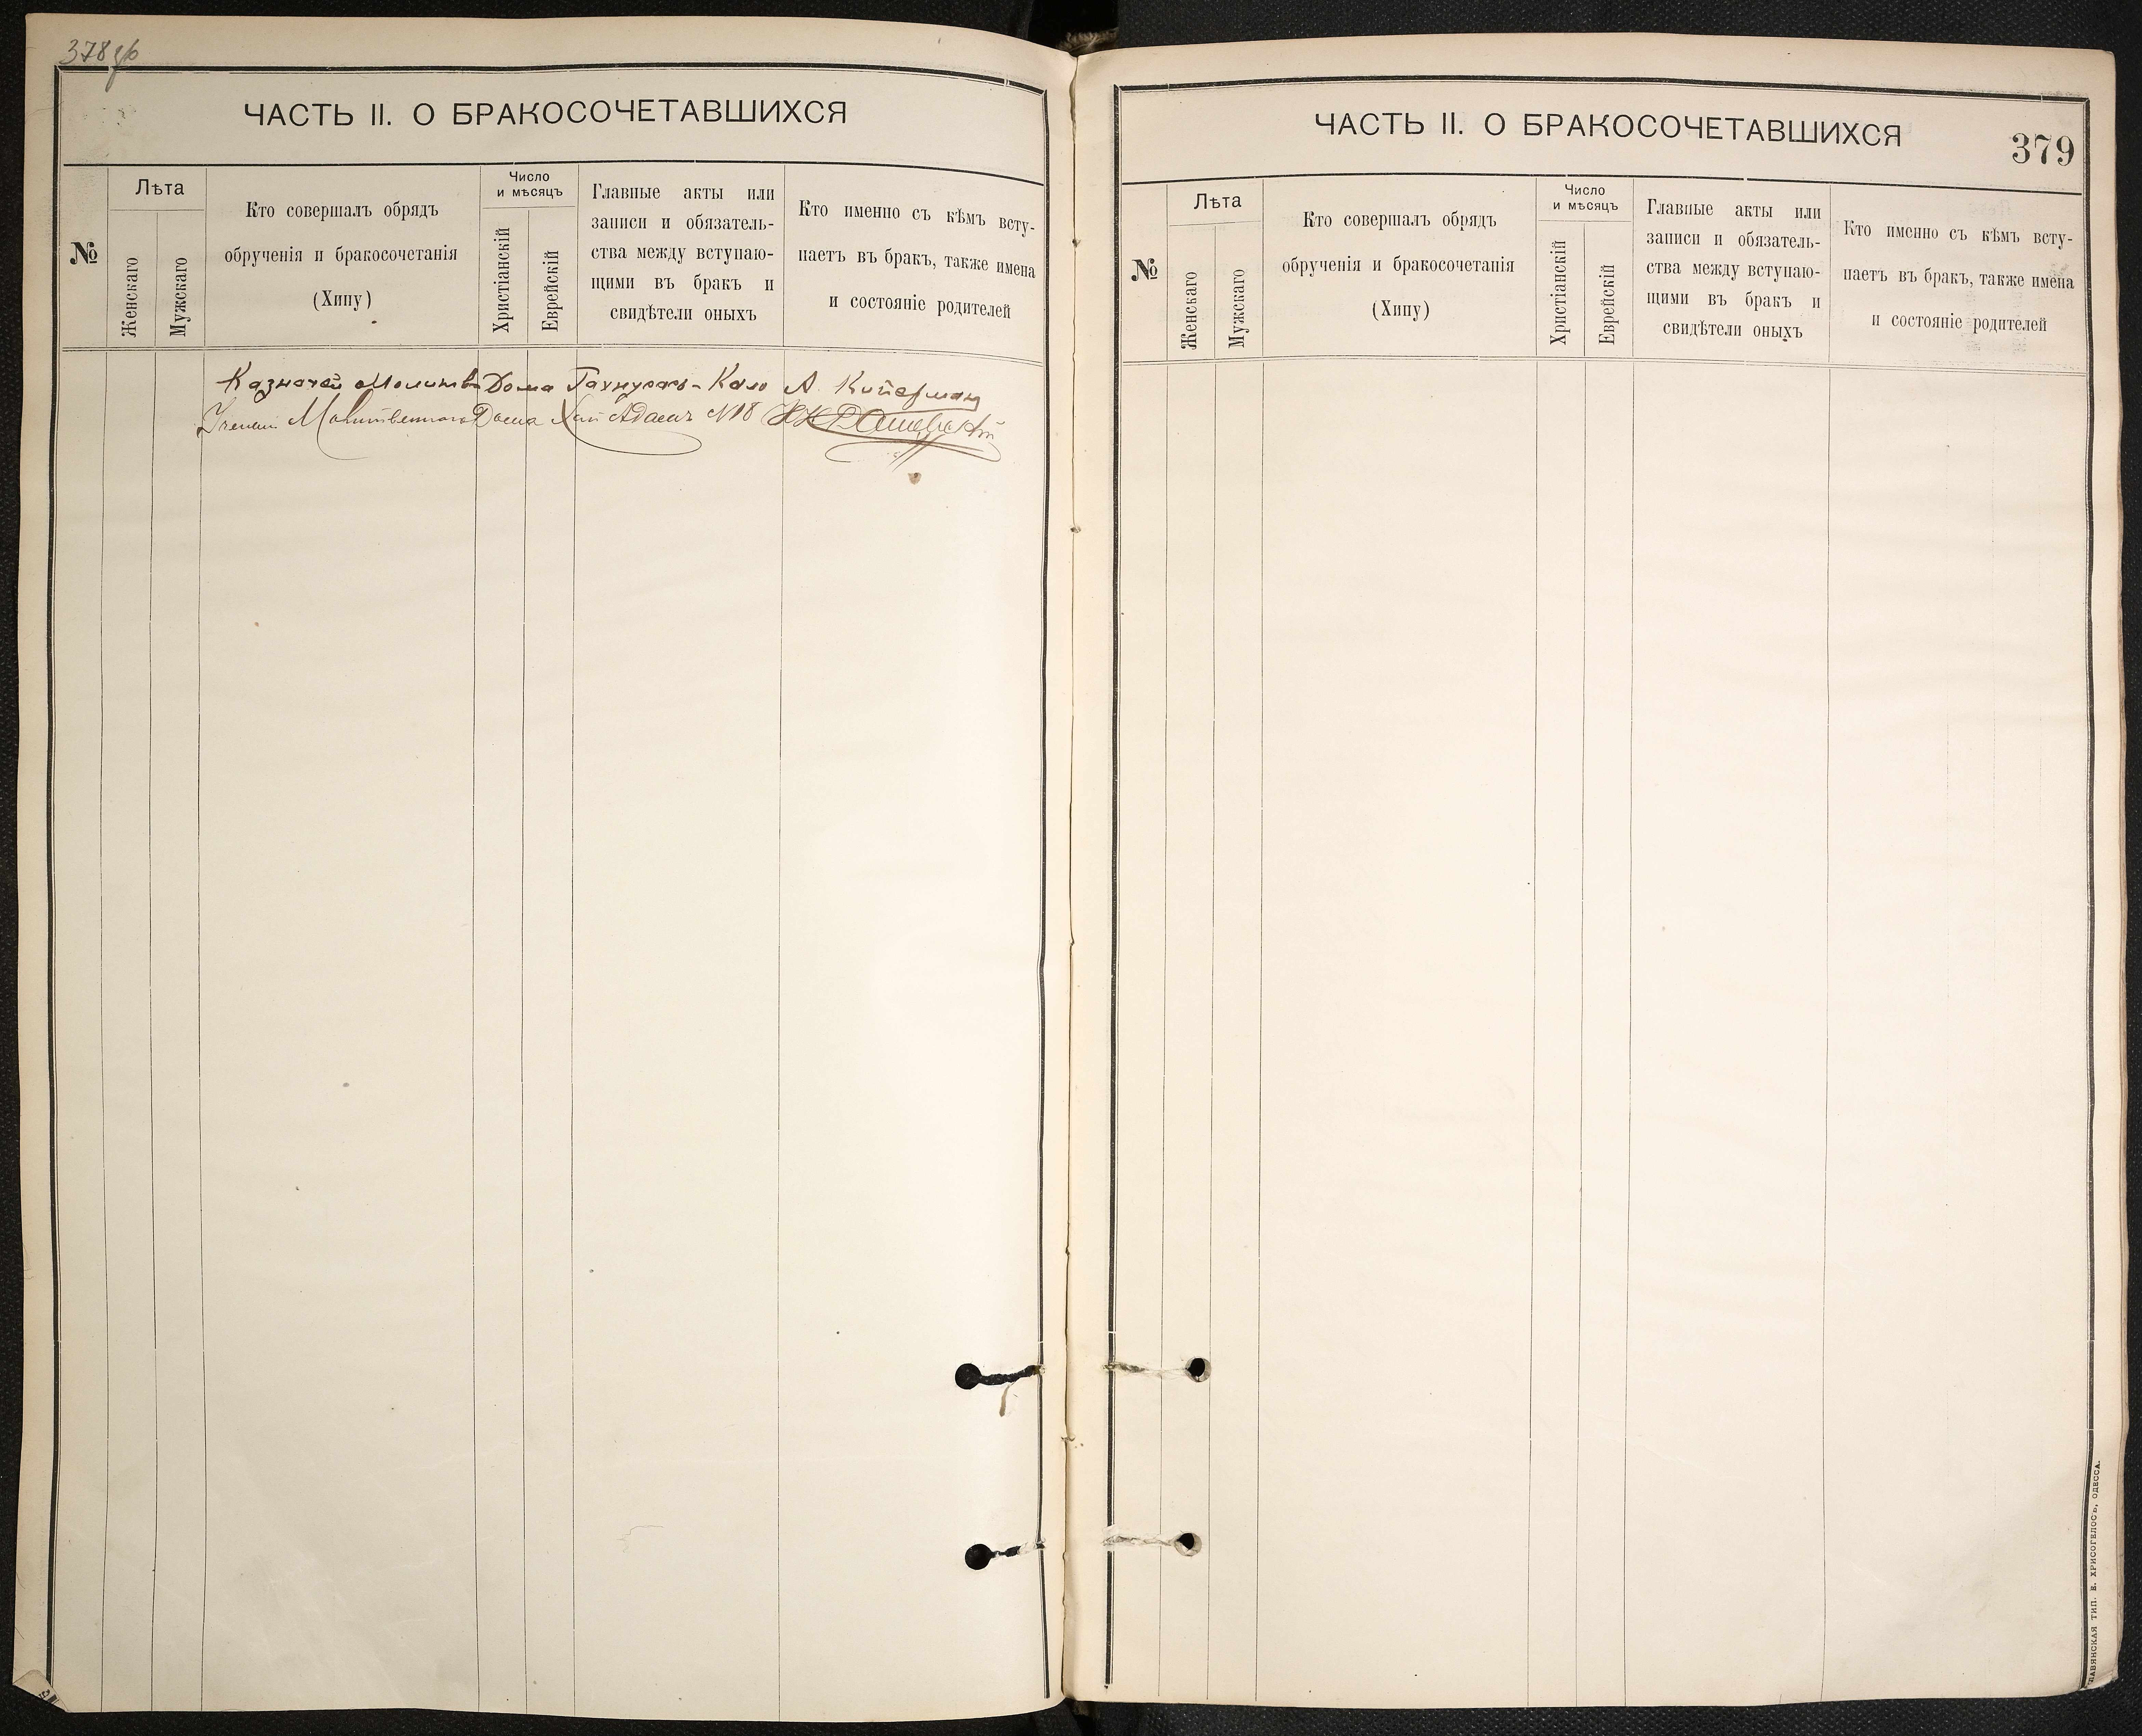 378 об
ЧАСТЬ II. О БРАКОСОЧЕТАВШИХСЯ
№
Лѣта
Женскаго
Мужскаго
Кто совершалъ обрядъ
обрученія и бракосочетанія
(Хипу)
Число
и мѣсяцъ
Христіанскій
Еврейскій
Главные акты или
записи и обязатель-
ства между вступаю-
щими въ бракъ и
свидѣтели оныхъ
Кто именно съ кѣмъ всту-
паетъ въ бракъ, также имена
и состояніе родителей
Казначей Молитв Дома А. Койферман
Молитвеннаго Дома Хай Адамъ №18
ЧАСТЬ II. О БРАКОСОЧЕТАВШИХСЯ
379
№
Лѣта
Женскаго
Мужскаго
Кто совершалъ обрядъ
обрученія и бракосочетанія
(Хипу)
Число
и мѣсяцъ
Христіанскій
Еврейскій
Главные акты или
записи и обязатель-
ства между вступаю-
щими въ бракъ и
свидѣтели оныхъ
Кто именно съ кѣмъ всту-
паетъ въ бракъ, также имена
и состояніе родителей
ТИП. Е. ХРИСОГЕЛОСЪ, ОДЕССА.